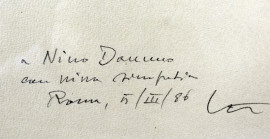 a Nino Donuno
con viva simpatia
Roma, 5/III/86